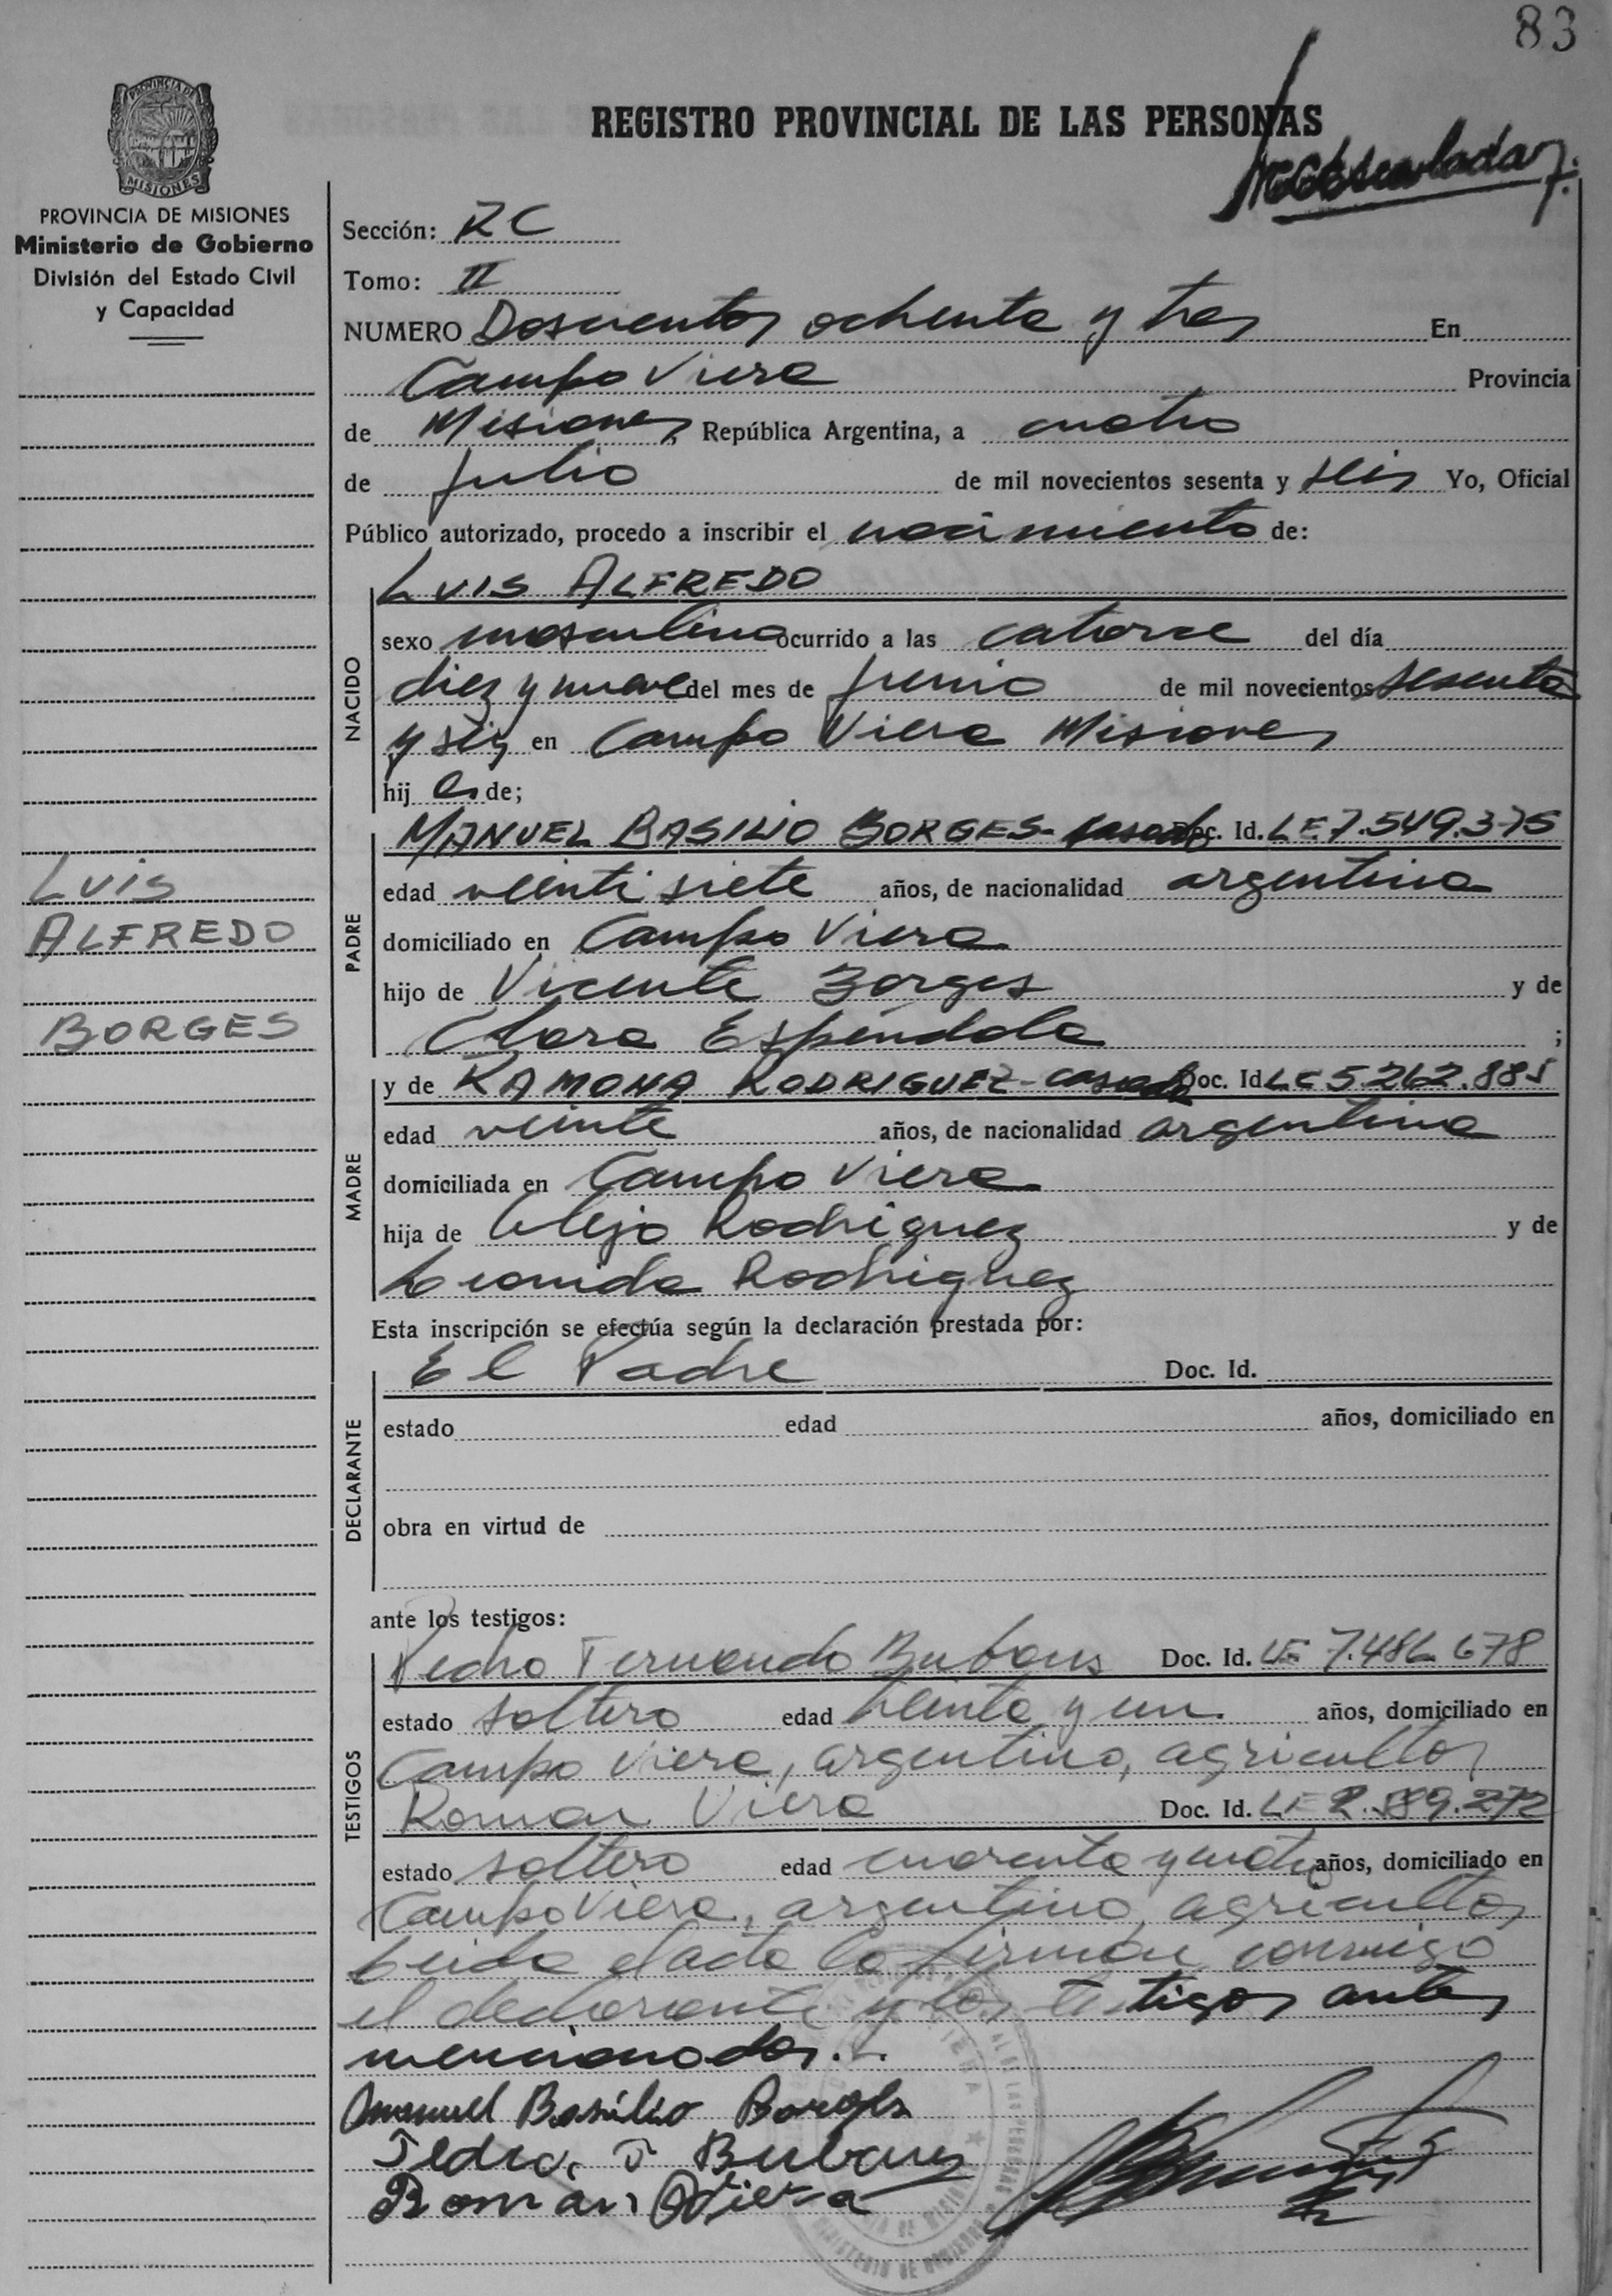 83
REGISTRO PROVINCIAL DE LAS PERSONAS
PROVINCIA DE MISIONES
PROVINCIA DE MISIONES
Ministerio de Gobierno
División del Estado Civil
y Capacidad
Sección: RC
Tomo: II
NUMERO Doscientos ochenta y tres En
Campo Viera Provincia
de Misiones, República Argentina, a cuatro
de Julio de mil novecientos sesenta y seis Yo, Oficial
Público autorizado, procedo a inscribir el nacimiento de:
LUIS ALFREDO
NACIDO
sexo masculino ocurrido a las catorce del día
diez y nueve del mes de junio de mil novecientos sesenta
y seis en Campo Viera Misiones
hij o de;
PADRE
MANUEL BASILIO BORGES- casado Doc. Id. LE 7.549.375
edad veinti siete años, de nacionalidad argentina
domiciliado en Campo Viera
hijo de Vicente Borges y de
Clara Espindola ;
LUIS
ALFREDO
BORGES
MADRE
y de RAMONA RODRIGUEZ- casada Doc. Id LC 5262.885
edad veinte años, de nacionalidad argentina
domiciliada en Campo Viera
hija de Alejo Rodriguez y de
Leonida Rodriguez
Esta inscripción se efectúa según la declaración prestada por:
DECLARANTE
El Padre Doc. Id.
estado edad años, domiciliado en
obra en virtud de
ante los testigos:
TESTIGOS
Pedro Fernando Doc. Id. LE 7.486 678
estado soltero edad treinta y un años, domiciliado en
Campo Viera, argentino, agricultor
Roman Viera Doc. Id. LE 2.589.272
estado soltero edad cuarenta y cuatro años, domiciliado en
Campo Viera, argentino, agricultor
Leida el acta la firman conmigo
el declarante y los testigos antes
mencionados.
Manuel Basilio Borges
Pedro F
Roman Viera